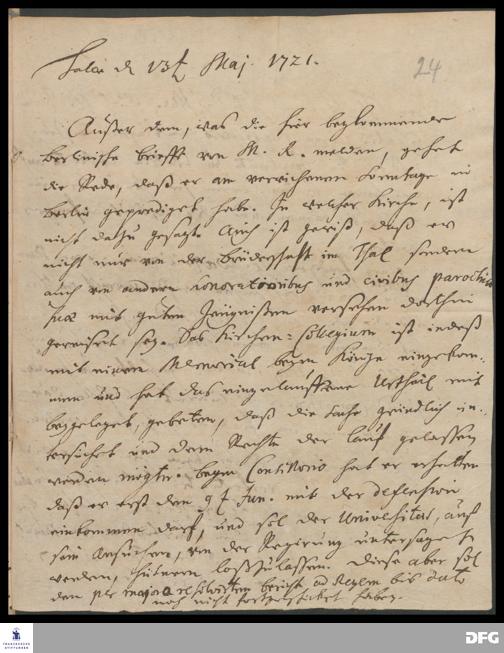 Halle d 13t Maj. 1721.
24
Außer dem, was die hier beykommende
berlinische brieffe von M. R. melden, gehet
die Rede, daß er am verwichenen Sonntage in
berlin geprediget habe. In welcher Kirche, ist
nicht dazu gesagt. Auch ist gewiß, daß er
nicht nur von der Brüderschafft im Thal sondern
auch von andern honoratioribus und civibus parochiæ
suæ mit guten Zeugnißen versehen dorthin
gereiset sey. Das Kirchen-Collegium ist indeß
mit einem Memorial beym Könige eingekom-
men und hat das eingelauffene Urtheil mit
beygeleget, gebeten, daß die Sache gründlich in-
versuchet und dem Rechte der lauf gelassen
werden mögte. beym Consistorio hat er erhalten
daß er erst den 9t Jun. mit der deflexion
einkommen darf, und sol der Universität, auf
sein Ansuchen, von der Regierung untersaget
werden, loßzulassen. Diese aber sol
den per majora resolvirten bericht ad Regem bis dato
noch nicht fortgeschicket haben.
FRANCKESCHE STIFTUNGEN
DFG